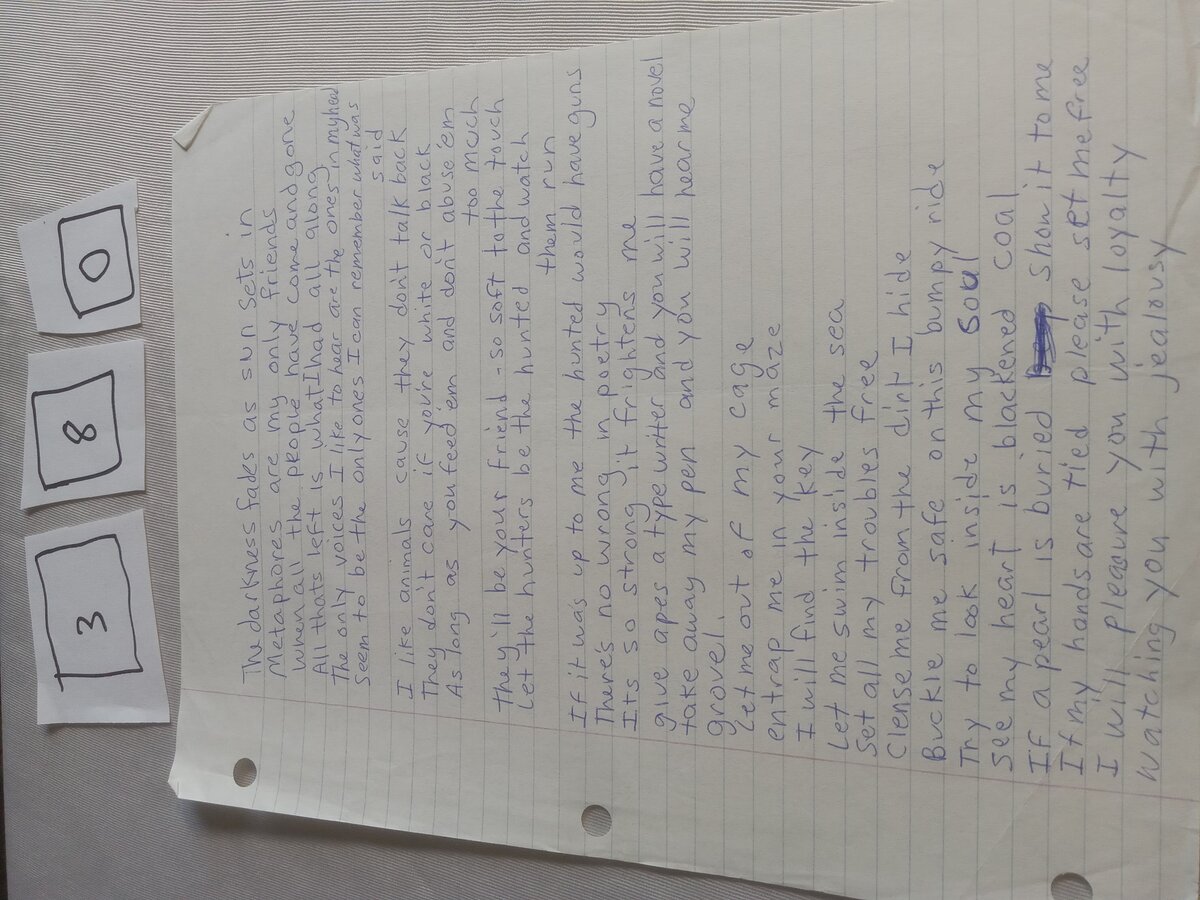 3 8 0
The darkness fades as sun sets in
Metaphores are my only friends
When all the people have come and gone
All thats left is what I had all along
The only voices I like to hear are the ones in my head
Seem to be the only ones I can remember what was
said
I like animals cause they don't talk back
They don't care if you're white or black
As long as you feed 'em and don't abuse 'em
too much
They'll be your friend - so soft to the touch
Let the hunters be the hunted and watch
them run
If it was up to me the hunted would have guns
There's no wrong in poetry
Its so strong it frightens me
give apes a type writer and you will have a novel
take away my pen and you will hear me
grovel.
Let me out of my cage
entrap me in your maze
I will find the key
Let me swim inside the sea
Set all my troubles free
Clense me from the dirt I hide
Buckle me safe on this bumpy ride
Try to look inside my soul
See my heart is blackened coal
If a pearl is buried show it to me
If my hands are tied please set me free
I will pleasure you with loyalty
Watching you with jealousy